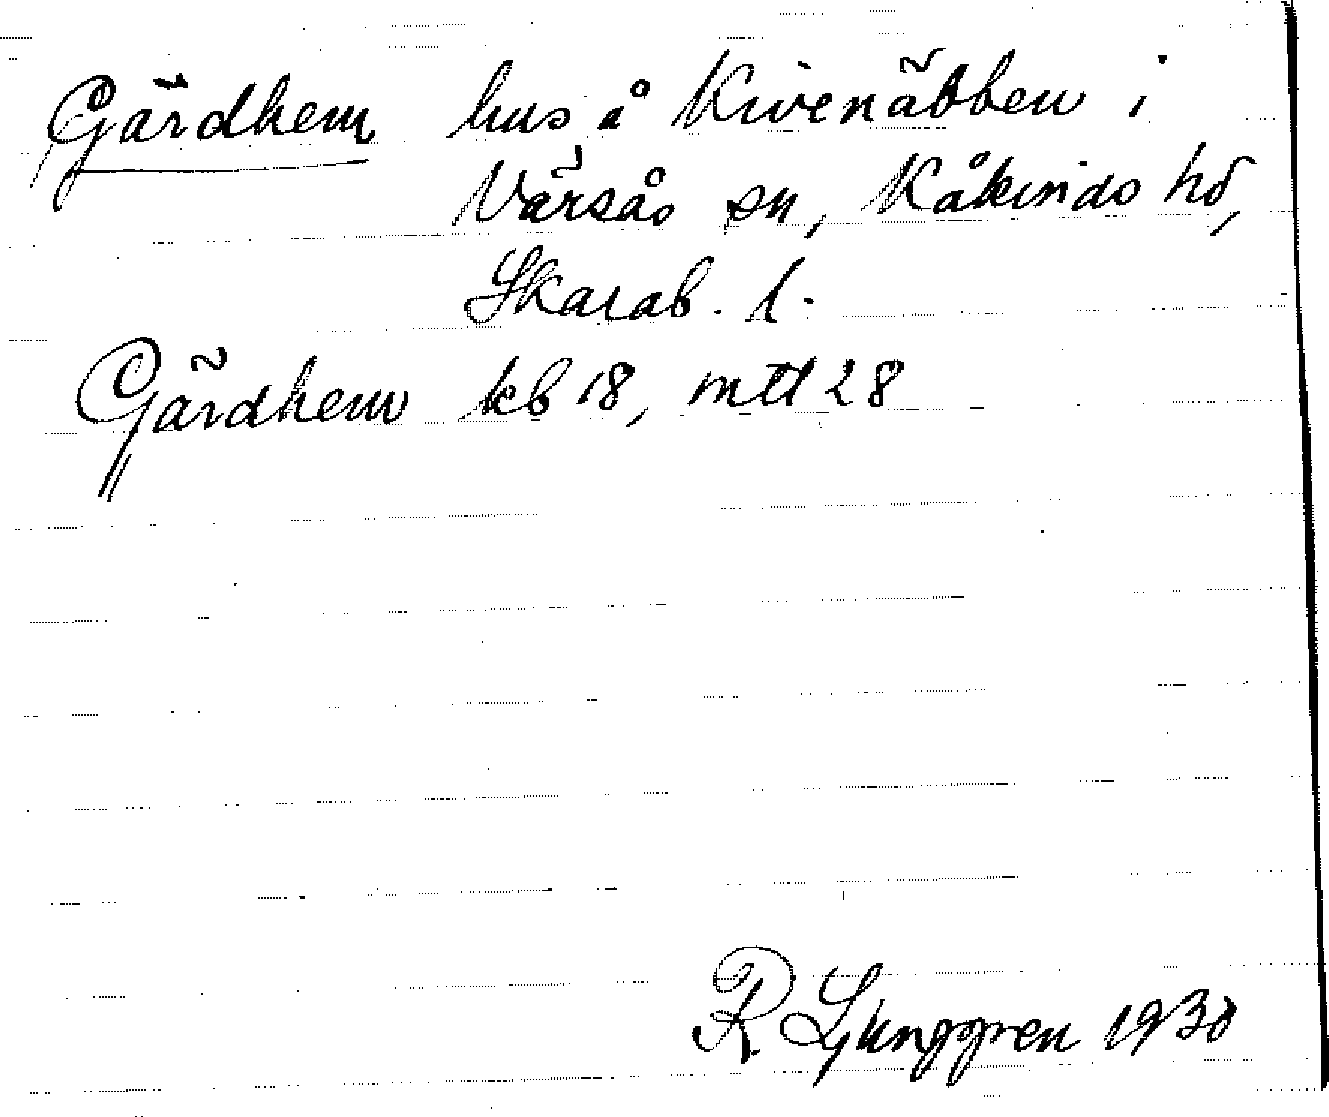 Gärdhem hus å Kivenäbben i
Värsås sn, Kåkinds hd,
Skarab. l.
Gärdhem kb 18, mtl 28
R. Ljunggren 1930